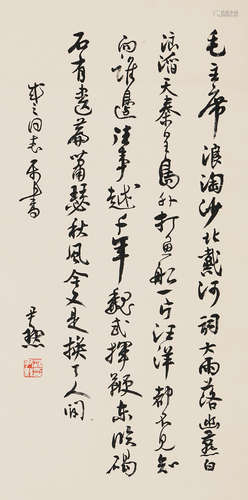 毛主席浪淘沙北戴河词大雨落幽燕白
浪滔天秦皇岛外打鱼船一片汪洋都不见知
向谁边往事越千年魏武挥鞭东临碣
石有遗篇萧瑟秋风今又是换了人间
同志属书
尹默